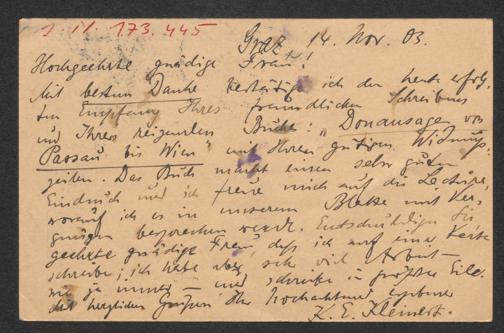 J. N. 173.445
Graz, 14. Nov. 03.
Hochgeehrte gnädige Frau!
Mit bestem Danke bestätige ich den heute erfolg-
ten Empfang Ihres freundlichen Schreibens
und Ihres reizenden Buches: "Donausagen von
Passau bis Wien" mit Ihren gütigen Widmungs-
zeilen. Das Buch macht einen sehr guten
Eindruck und ich freue mich auf die Lectüre,
worauf ich es in unserem Blatte mit Ver-
gnügen besprechen werde. Entschuldigen Sie
geehrte gnädige Frau, daß ich auf einer Karte
schreibe, ich habe aber sehr viel Arbeit —
wie ja immer — und schreibe in größter Eile.
Mit herzlichen Grüßen Ihr hochachtungsvoll ergebener
K. E. Klemert.